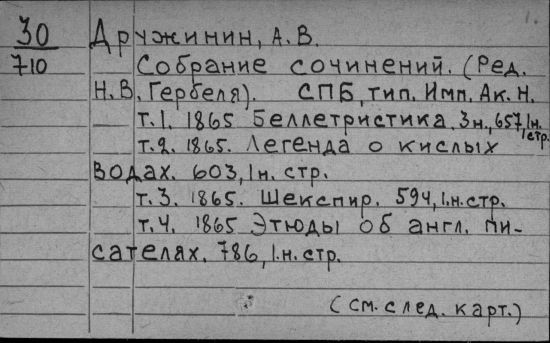 1.
30 Дружинин, А.В.
710 Собрание сочинений. (Ред.
Н.В. Гербеля). СПБ, тип. Имп. Ак. Н.
т.1. 1865 Беллетристика. 3н., 657, 1н.
стр.
т.2. 1865. Легенда о кислых
водах. 603, 1н. стр.
т.3. 1865. Шекспир. 594, 1.н. стр.
т.4. 1865 Этюды об англ. пи-
сателях. 786, 1.н. стр.
(см. след. карт.)